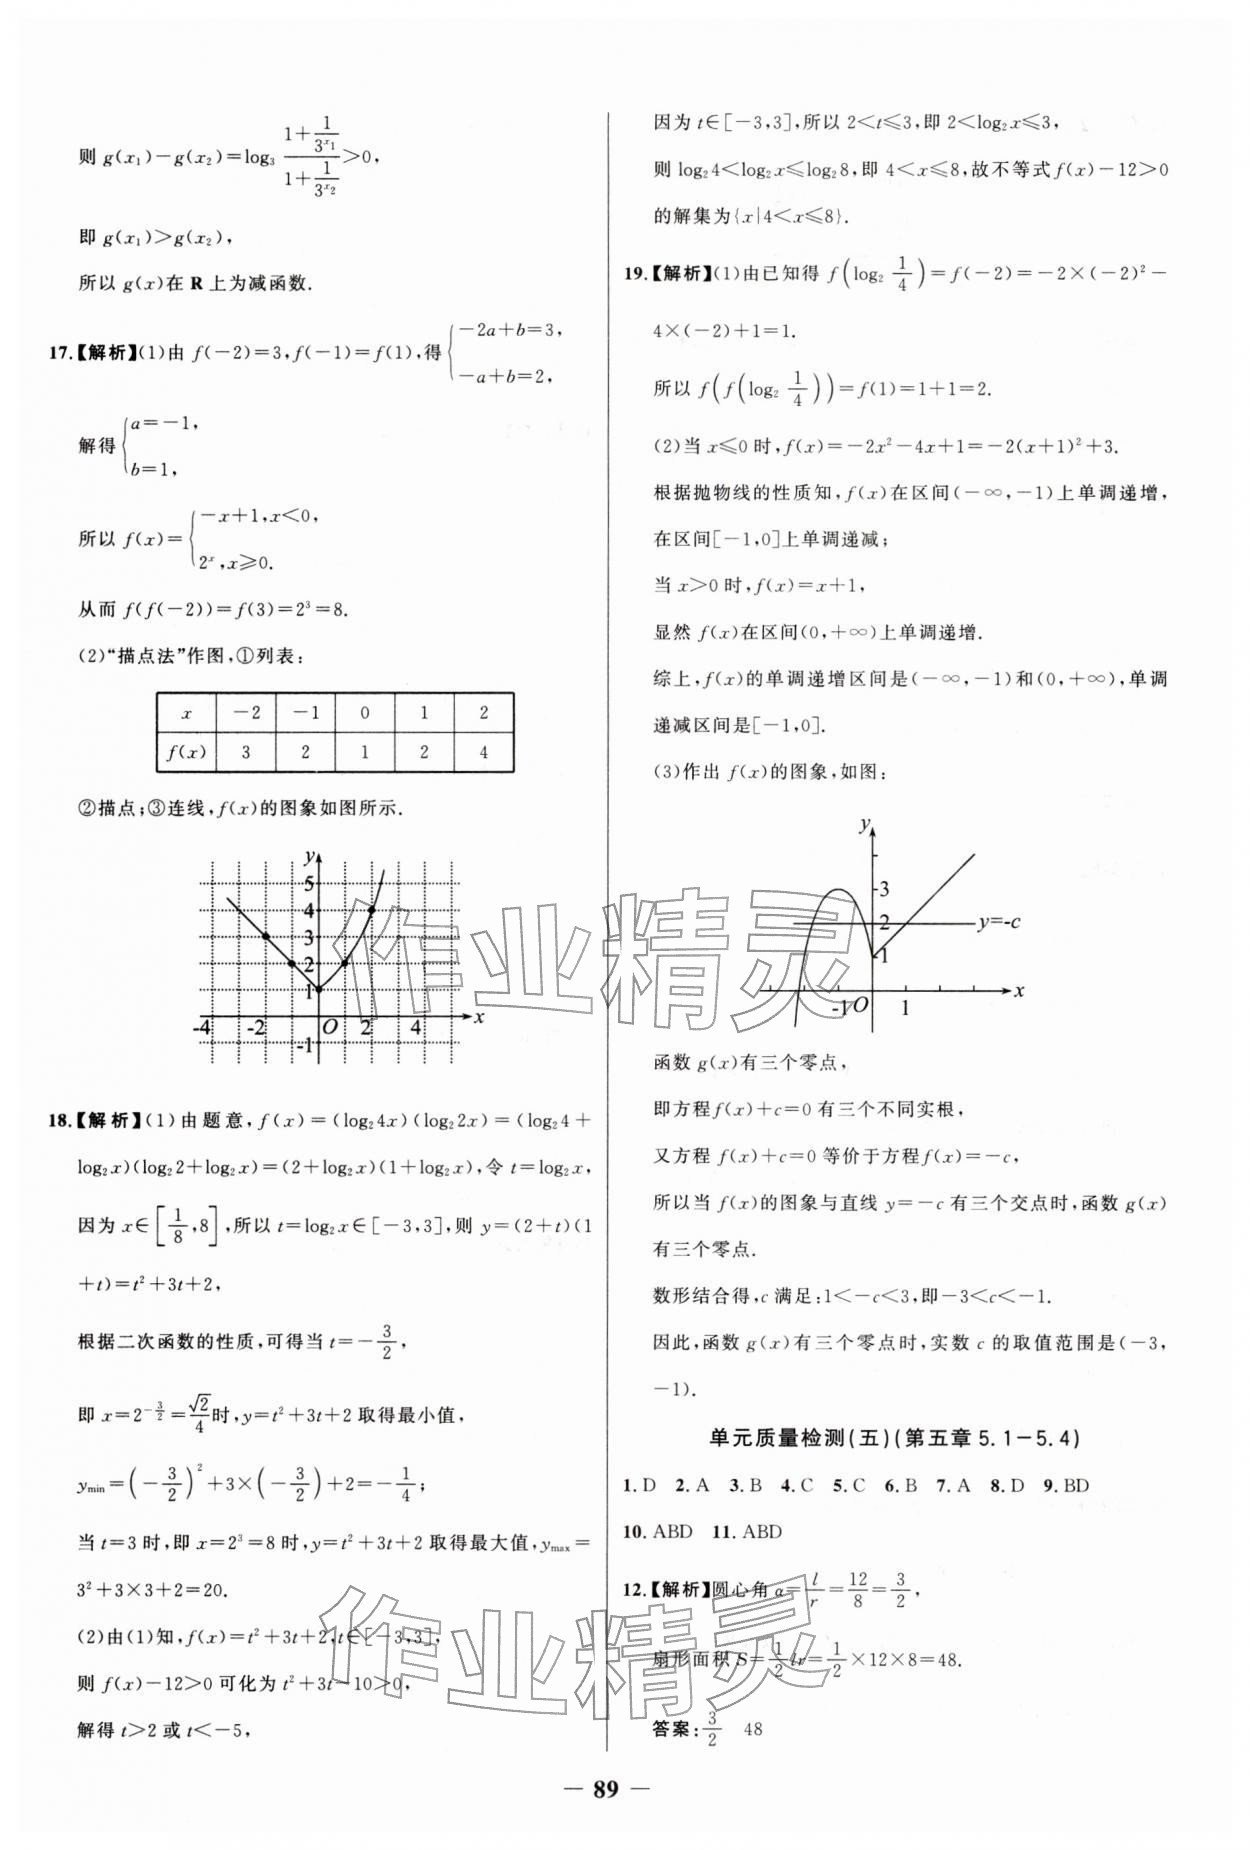 则 g(x₁)－g(x₂)＝log₃ (1＋1/3^{x₁})/(1＋1/3^{x₂})＞0，
即 g(x₁)＞g(x₂)，
所以 g(x)在 R 上为减函数.
17.【解析】(1)由 f(－2)＝3，f(－1)＝f(1)，得{－2a＋b＝3，
－a＋b＝2，
解得{a＝－1，
b＝1，
所以 f(x)＝{－x＋1，x＜0，
2^x，x≥0.
从而 f(f(－2))＝f(3)＝2³＝8.
(2)“描点法”作图，①列表：
x －2 －1 0 1 2
f(x) 3 2 1 2 4
②描点；③连线，f(x)的图象如图所示.
y
5
4
3
2
1
-4 -2 O 2 4 x
-1
18.【解析】(1)由题意，f(x)＝(log₂4x)(log₂2x)＝(log₂4＋
log₂x)(log₂2＋log₂x)＝(2＋log₂x)(1＋log₂x)，令 t＝log₂x，
因为 x∈[1/8，8]，所以 t＝log₂x∈[－3，3]，则 y＝(2＋t)(1
＋t)＝t²＋3t＋2，
根据二次函数的性质，可得当 t＝－3/2，
即 x＝2^{－3/2}＝√2/4时，y＝t²＋3t＋2 取得最小值，
y_min＝(－3/2)²＋3×(－3/2)＋2＝－1/4；
当 t＝3 时，即 x＝2³＝8 时，y＝t²＋3t＋2 取得最大值，y_max＝
3²＋3×3＋2＝20.
(2)由(1)知，f(x)＝t²＋3t＋2，t∈[－3，3]，
则 f(x)－12＞0 可化为 t²＋3t－10＞0，
解得 t＞2 或 t＜－5，
因为 t∈[－3，3]，所以 2＜t≤3，即 2＜log₂x≤3，
则 log₂4＜log₂x≤log₂8，即 4＜x≤8，故不等式 f(x)－12＞0
的解集为{x|4＜x≤8}.
19.【解析】(1)由已知得 f(log₂ 1/4)＝f(－2)＝－2×(－2)²－
4×(－2)＋1＝1.
所以 f(f(log₂ 1/4))＝f(1)＝1＋1＝2.
(2)当 x≤0 时，f(x)＝－2x²－4x＋1＝－2(x＋1)²＋3.
根据抛物线的性质知，f(x)在区间(－∞，－1)上单调递增，
在区间[－1，0]上单调递减；
当 x＞0 时，f(x)＝x＋1，
显然 f(x)在区间(0，＋∞)上单调递增.
综上，f(x)的单调递增区间是(－∞，－1)和(0，＋∞)，单调
递减区间是[－1，0].
(3)作出 f(x)的图象，如图：
y
3
2 y=-c
1
-1 O 1 x
函数 g(x)有三个零点，
即方程f(x)＋c＝0 有三个不同实根，
又方程 f(x)＋c＝0 等价于方程f(x)＝－c，
所以当 f(x)的图象与直线 y＝－c 有三个交点时，函数 g(x)
有三个零点.
数形结合得，c 满足：1＜－c＜3，即－3＜c＜－1.
因此，函数 g(x)有三个零点时，实数 c 的取值范围是(－3，
－1).
单元质量检测(五)(第五章 5.1－5.4)
1. D 2. A 3. B 4. C 5. C 6. B 7. A 8. D 9. BD
10. ABD 11. ABD
12.【解析】圆心角 α＝l/r＝12/8＝3/2，
扇形面积 S＝1/2 lr＝1/2×12×8＝48.
答案：3/2 48
— 89 —
作业精灵
作业精灵